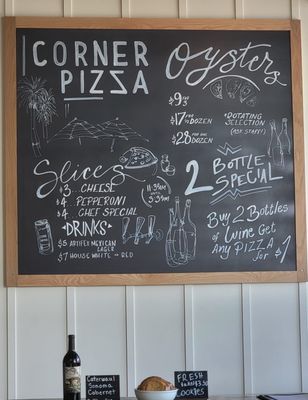 CORNER
PIZZA
Oysters
$9 FOR 3
$17 FOR ½ DOZEN
$28 FOR ONE DOZEN
*ROTATING
SELECTION
(ASK STAFF)
Slices
11:30AM
3:30PM
$3...CHEESE
$4..PEPPERONI
$4 CHEF SPECIAL
DRINKS
$5 ARTIFEX MEXICAN
LAGER
$7 HOUSE WHITE OR RED
2 BOTTLE
SPECIAL
BUY 2 BOTTLES
OF WINE GET
ANY PIZZA
for $1
Caterwaul
Sonoma
Cabernet
FRESH
BAKED $3.50
COOKIES